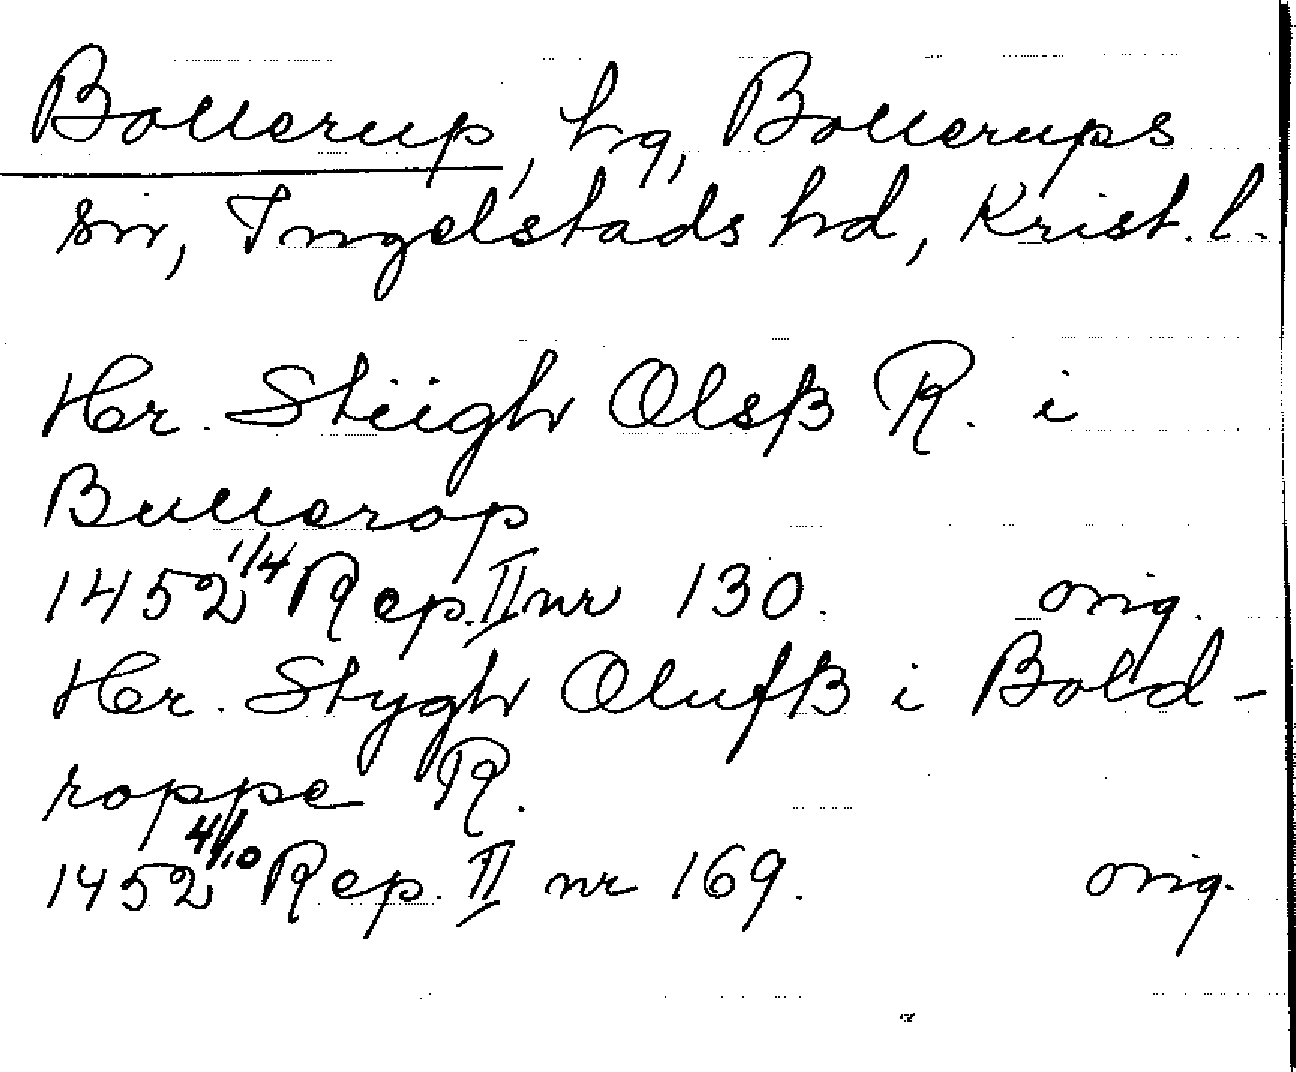 Bollerup, hg, Bollerups
sn, Ingelstads hd, Krist. l.
Her. Stiigh Olsß R. i
Bullerop
1452 1/4 Rep. II nr 130. orig.
Her. Stygh Olufß i Bold-
roppe R.
1452 4/10 Rep. II nr 169. orig.